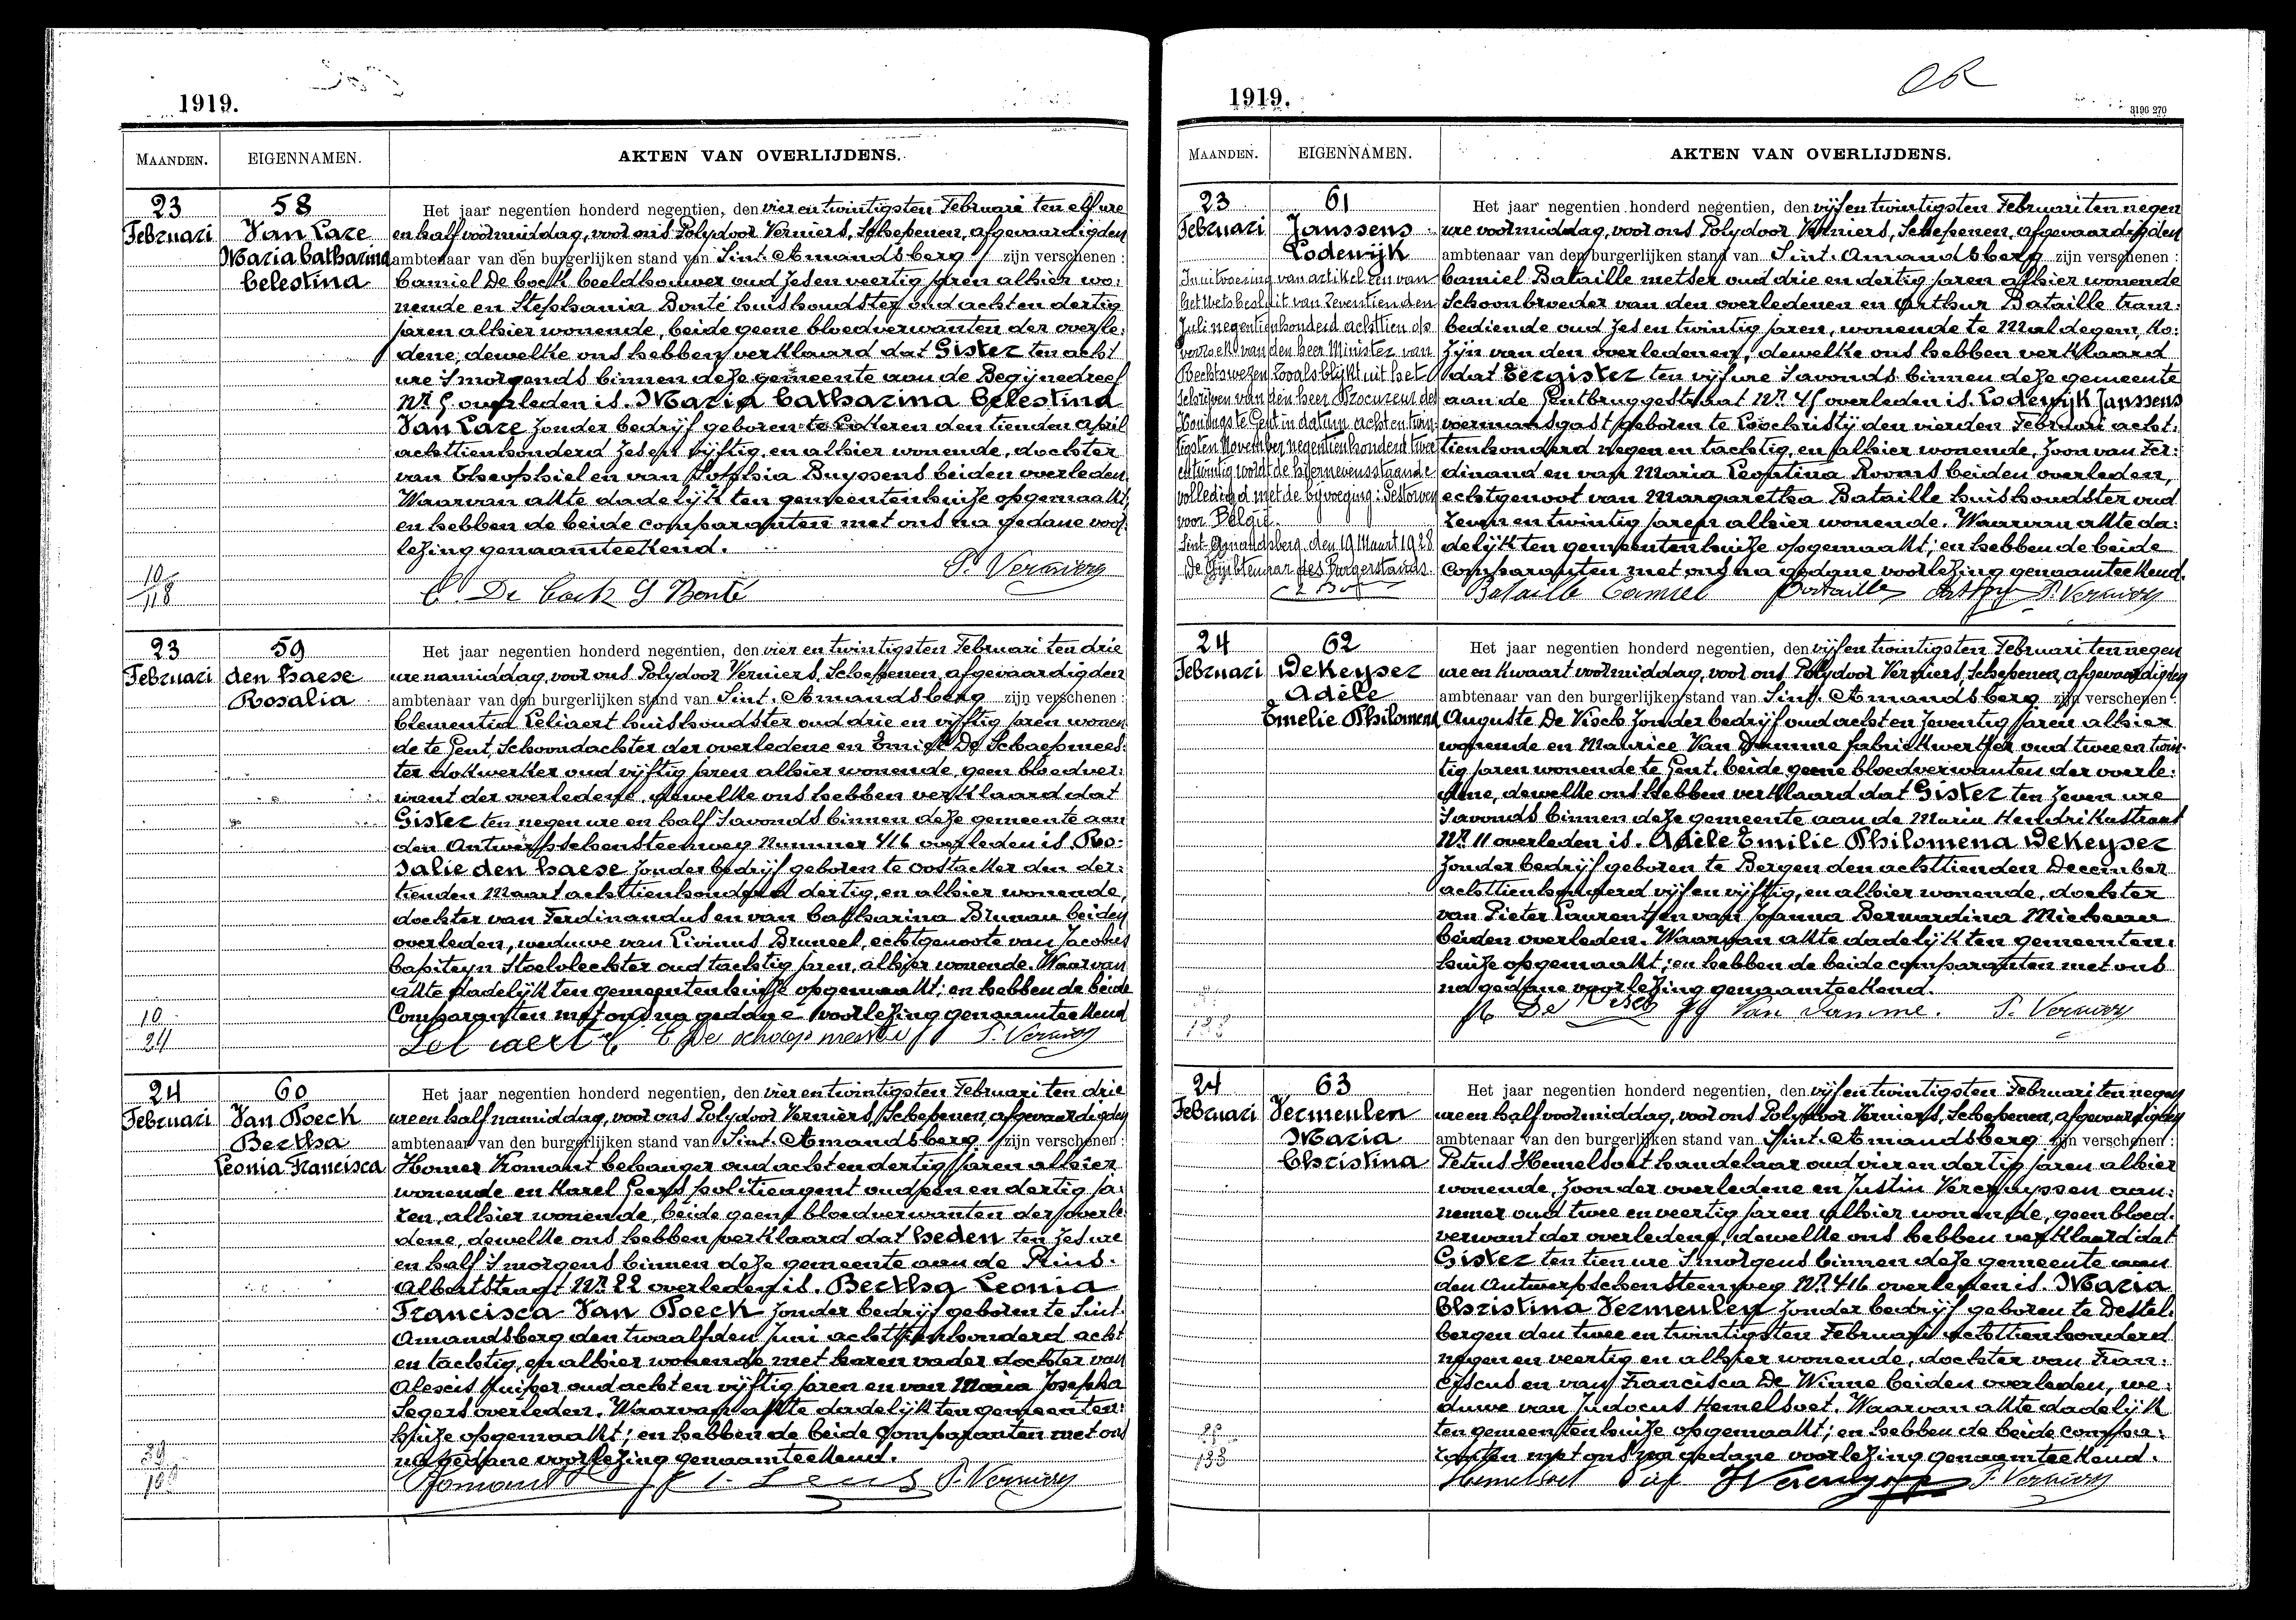 1919.
MAANDEN.
EIGENNAMEN.
AKTEN VAN OVERLIJDENS.
23
Februari
58
Van Lare
Maria Catharina
Celestina
Het jaar negentien honderd negentien, den vier en twintigsten Februari ten elf ure
en half voormiddag, voor ons Polydoor Verniers, Schepenen, afgevaardigden
ambtenaar van den burgerlijken stand van Sint. Amandsberg zijn verschenen :
Camiel De Cock beeldhouwer oud zes en veertig jaren alhier wo:
nende en Stephania Bonté huishoudster oud acht en dertig
jaren alhier wonende, beide geene bloedverwanten der overle:
dene, dewelke ons hebben verklaard dat Gister ten acht
ure 's morgends binnen deze gemeente aan de Begijnedreef
Nr. 5 overleden is. Maria Catharina Celestina
Van Lare zonder bedrijf geboren te Lotteren den tienden April
achttienhonderd zes en vijftig, en alhier wonende, dochter
van Theophiel en van Sophia Buyssens beiden overleden.
Waarvan akte dadelijk ten gemeentenhuize opgemaakt,
en hebben de beide comparanten met ons na gedane voor:
lezing genaamteekend.
P. Verniers
C. De Cock S Bonté
10
118
23
Februari
59
den haese
Rosalia
Het jaar negentien honderd negentien, den vier en twintigsten Februari ten drie
ure namiddag, voor ons Polydoor Verniers, Schepenen, afgevaardigden
ambtenaar van den burgerlijken stand van Sint. Amandsberg zijn verschenen :
Clementia Leliaert huishoudster oud drie en vijftig jaren wonen
de te Gent, Schoondochter der overledene en Emiel De Schaepmees:
ter dokwerker oud vijftig jaren alhier wonende, geen bloedver:
want der overledene, dewelke ons hebben verklaard dat
Gister ten negen ure en half 's avonds binnen deze gemeente aan
den Antwerpschensteenweg Nummer 416 overleden is. Ro:
salie den haese zonder bedrijf geboren te Oostacker den der:
tienden Maart achttienhonderd dertig, en alhier wonende,
dochter van Ferdinandus en van Catharina Brunau beiden
overleden, weduwe van Livinus Bruneel, echtgenoote van Jacobus
Capiteyn Stoelvlechter oud tachtig jaren, alhier wonende. Waarvan
akte dadelijk ten gemeentenhuize opgemaakt; en hebben de beide
Comparanten met ons na gedane voorlezing genaamteekend
Leliaert C E De schaepmeester P. Verniers
10
24
24
Februari
60
Van Poeck
Bertha
Leonia Francisca
Het jaar negentien honderd negentien, den vier en twintigsten Februari ten drie
ure en half namiddag, voor ons Polydoor Verniers, Schepenen, afgevaardigden
ambtenaar van den burgerlijken stand van Sint. Amandsberg zijn verschenen :
Homer Romant behanger oud acht en dertig jaren alhier
wonende en Karel Geers politieagent oud een en dertig ja:
ren, alhier wonende, beide geene bloedverwanten der overle
dene, dewelke ons hebben verklaard dat heden ten zes ure
en half 's morgens binnen deze gemeente aan de Prins.
Albertstraat Nr. 22 overleden is. Bertha Leonia
Francisca Van Poeck zonder bedrijf geboren te Sint.
Amandsberg den twaalfden Juni achttienhonderd acht
en tachtig, en alhier wonende met haren vader dochter van
Alexis kuiper oud acht en vijftig jaren en van Maria Josepha
Segers overleden. Waarvan akte dadelijk ten gemeenten:
huize opgemaakt; en hebben de beide Comparanten met ons
na gedane voorlezing genaamteekend.
P. Verniers
1919.
3196 270
MAANDEN.
EIGENNAMEN.
AKTEN VAN OVERLIJDENS.
23
Februari
61
Janssens
Lodewijk
In uitvoering van artikel een van
het wetsbesluit van zeventienden
Juli negentienhonderd achttien op
verzoek van den heer Minister van
Rechtswezen zooals blijkt uit het
schrijven van den heer Procureur des
Konings te Gent in datum achtentwin:
tigsten November negentienhonderd twee
en twintig wordt de hiernevensstaande
volledigd met de bijvoeging: Gestorven
voor België.
Sint-Amandsberg, den 19 Maart 1928
De Ambtenaar des Burgerstands.
Het jaar negentien honderd negentien, den vijf en twintigsten Februari ten negen
ure voormiddag, voor ons Polydoor Verniers, Schepenen, afgevaardigden
ambtenaar van den burgerlijken stand van Sint. Amandsberg zijn verschenen :
Camiel Bataille metser oud drie en dertig jaren alhier wonende
Schoonbroeder van den overledenen en Arthur Bataille tram:
bediende oud zes en twintig jaren, wonende te Maldegem, ko:
zijn van den overledenen, dewelke ons hebben verklaard
dat Eergister ten vijf ure 's avonds binnen deze gemeente
aan de Gentbruggestraat Nr. 45 overleden is. Lodewijk Janssens
voermansgast geboren te Loochristy den vierden Februari acht:
tienhonderd negen en tachtig, en alhier wonende, zoon van Fer:
dinand en van Maria Leontina Rooms beiden overleden,
echtgenoot van Margaretha Bataille huishoudster oud
zeven en twintig jaren alhier wonende. Waarvan akte da:
delijk ten gemeentenhuize opgemaakt; en hebben de beide
Comparanten met ons na gedane voorlezing genaamteekend.
Bataille Camiel Bataille Arthur P. Verniers
24
Februari
62
DeKeyser
Adèle
Emelie Philomena
Het jaar negentien honderd negentien, den vijf en twintigsten Februari ten negen
ure en kwaart voormiddag, voor ons Polydoor Verniers, Schepenen, afgevaardigden
ambtenaar van den burgerlijken stand van Sint. Amandsberg zijn verschenen :
Auguste De Visch zonder bedrijf oud acht en zeventig jaren alhier
wonende en Maurice Van Damme fabriekwerker oud twee en twin:
tig jaren wonende te Gent, beide geene bloedverwanten der overle:
dene, dewelke ons hebben verklaard dat Gister ten zeven ure
's avonds binnen deze gemeente aan de Maria Hendrikastraat
Nr. 11 overleden is. Adèle Emilie Philomena DeKeyser
zonder bedrijf geboren te Bergen den achttienden December
achttienhonderd vijf en vijftig, en alhier wonende, dochter
van Pieter Laurent en van Joanna Bernardina Micheau
beiden overleden. Waarvan akte dadelijk ten gemeenten:
huize opgemaakt; en hebben de beide comparanten met ons
na gedane voorlezing genaamteekend.
De Visch Van Damme. P. Verniers
24
Februari
63
Vermeulen
Maria
Christina
Het jaar negentien honderd negentien, den vijf en twintigsten Februari ten negen
ure en half voormiddag, voor ons Polydoor Verniers, Schepenen, afgevaardigden
ambtenaar van den burgerlijken stand van Sint. Amandsberg zijn verschenen :
Petrus Hemelsoet handelaar oud vier en dertig jaren alhier
wonende, zoon der overledene en Justin Vercruyssen aan:
nemer oud twee en veertig jaren alhier wonende, geen bloed.
verwant der overledene, dewelke ons hebben verklaard dat
Gister ten tien ure 's morgens binnen deze gemeente aan
den Antwerpschensteenweg Nr. 416 overleden is. Maria
Christina Vermeulen zonder bedrijf geboren te Destel.
bergen den twee en twintigsten Februari achttienhonderd
negen en veertig en alhier wonende, dochter van Fran:
ciscus en van Francisca De Winne beiden overleden, we:
duwe van Judocus Hemelsoet. Waarvan akte dadelijk
ten gemeentenhuize opgemaakt; en hebben de beide compa:
ranten met ons na gedane voorlezing genaamteekend.
Hemelsoet Piet P. Verniers